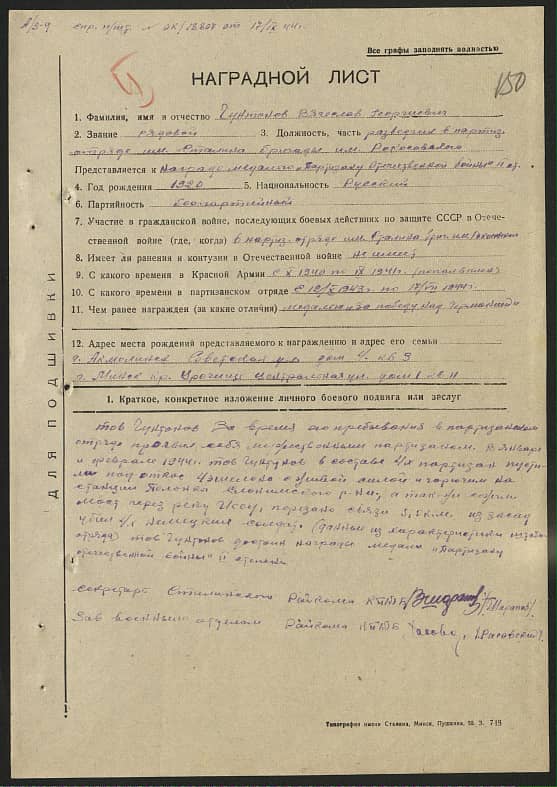 спр. п/шд. № ОК/18807 от 17/IX 44 г.
Все графы заполнять полностью
150
НАГРАДНОЙ ЛИСТ
1. Фамилия, имя и отчество Чунтонов Вячеслав Георгиевич
2. Звание рядовой 3. Должность, часть разведчик в партиз.
отряде им. Сталина бригады им. Рокосовского
Представляется к Награде медалью „Партизану Отечественной войны" II ст.
4. Год рождения 1920 5. Национальность Русский
6. Партийность беспартийный
7. Участие в гражданской войне, последующих боевых действиях по защите СССР в Отече-
ственной войне (где, когда) в партиз. отряде им. Сталина
8. Имеет ли ранения и контузии в Отечественной войне не имеет
9. С какого времени в Красной Армии с X 1940 по IX 1941 г.
10. С какого времени в партизанском отряде с 1943 г. по 1944 г.
11. Чем ранее награжден (за какие отличия) медаль „за победу над Германией"
12. Адрес места рождения представляемого к награждению и адрес его семьи
г. Акмолинск Советская ул дом 4. кв 3
г. Минск пр. Урочище Центральная ул. дом 1
I. Краткое, конкретное изложение личного боевого подвига или заслуг
тов Чунтонов За время его пребывания в партизанском
отряде проявил себя мужественным партизаном. В январе
и феврале 1944 г. тов Чунтонов в составе 4х партизан пусти-
ли под откос 4 эшелона с живой силой и горючим на
станции Полонка Слонимского р-на, а так-же сожгли
мост через реку Иссу, порезано связи 3,5 км. из засад
убил 4х немецких солдат. (данные из характеристики штаба
отряда) тов Чунтонов достоин награды медали „Партизану
отечественной войны" II степени
секретарь Сталинского Райкома КПб/Б
Зав военным отделом Райкома КП/б/Б
ДЛЯ ПОДШИВКИ
Типография имени Сталина, Минск, Пушкина, 55. З. 749